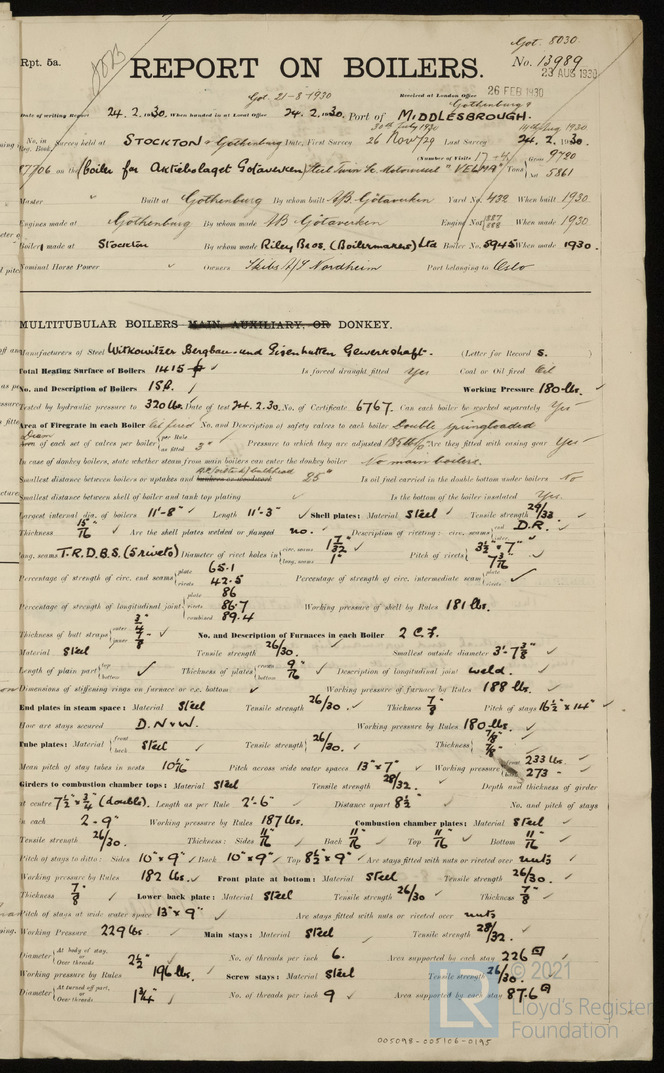 Got. 8030
8073
Rpt. 5a.
REPORT ON BOILERS.
No. 13989
23 AUG 1930
Got 21-8-1930
Received at London Office 26 FEB 1930
Date of writing Report 24.2.1930. When handed in at Local Office 24.2.1930. Port of MIDDLESBROUGH. Gothenburg
No. in Reg. Book. Survey held at STOCKTON & Gothenburg Date, First Survey 26 Nov 29 30th July 1930 Last Survey 24.2.1930. 14th Aug 1930
(Number of Visits 17
77706 on the (boiler for Aktiebolaget Götaverken) Steel Twin Sc. Motorvessel "VELMA" Tons Gross 9720 Net 5861
Master Built at Gothenburg By whom built A/B Götaverken Yard No. 432 When built 1930
Engines made at Gothenburg By whom made A/B Götaverken Engine Nos. 887 888 When made 1930
Boiler made at Stockton By whom made Riley Bros. (Boilermakers) Ltd Boiler No. 5945 When made 1930.
Nominal Horse Power Owners Skibs A/S Nordheim Port belonging to Oslo
MULTITUBULAR BOILERS MAIN, AUXILIARY, OR DONKEY.
Manufacturers of Steel Witkowitzer Bergbau- und Eisenhutten Gewerkshaft. (Letter for Record S. )
Total Heating Surface of Boilers 1415 Is forced draught fitted Yes Coal or Oil fired Oil
No. and Description of Boilers 1 S.B. Working Pressure 180 lbs.
Tested by hydraulic pressure to 320 lbs. Date of test 24.2.30. No. of Certificate 6767. Can each boiler be worked separately Yes
Area of Firegrate in each Boiler Oil fired No. and Description of safety valves to each boiler Double springloaded
Area of each set of valves per boiler per Rule as fitted 3" Pressure to which they are adjusted 185 lbs Are they fitted with easing gear Yes
In case of donkey boilers, state whether steam from main boilers can enter the donkey boiler No main boilers.
Smallest distance between boilers or uptakes and bunkers or woodwork bulkhead 25" Is oil fuel carried in the double bottom under boilers No
Smallest distance between shell of boiler and tank top plating Is the bottom of the boiler insulated Yes.
Largest internal dia. of boilers 11'-8" Length 11'-3" Shell plates: Material Steel Tensile strength 29/33
Thickness 15/16" Are the shell plates welded or flanged no. Description of riveting: circ. seams end D.R. inter.
long. seams T.R.D.B.S. (5 rivets) Diameter of rivet holes in circ. seams 1 7/32 long. seams 1" Pitch of rivets 3½" 7" 7 3/16
Percentage of strength of circ. end seams plate 65.1 rivets 42.5 Percentage of strength of circ. intermediate seam plate rivets
Percentage of strength of longitudinal joint plate 86 rivets 86.7 combined 89.4 Working pressure of shell by Rules 181 lbs.
Thickness of butt straps outer 3/4" inner 7/8" No. and Description of Furnaces in each Boiler 2 C.F.
Material Steel Tensile strength 26/30. Smallest outside diameter 3'-7 3/8"
Length of plain part top bottom Thickness of plates crown bottom 9/16" Description of longitudinal joint weld.
Dimensions of stiffening rings on furnace or c.c. bottom Working pressure of furnace by Rules 188 lbs.
End plates in steam space: Material Steel Tensile strength 26/30 Thickness 7/8" Pitch of stays 16½" x 14"
How are stays secured D.N & W. Working pressure by Rules 180 lbs.
Tube plates: Material front back Steel Tensile strength 26/30. Thickness 7/8" 7/8"
Mean pitch of stay tubes in nests 10 1/16 Pitch across wide water spaces 13" x 7" Working pressure front 233 lbs. back 273
Girders to combustion chamber tops: Material Steel Tensile strength 28/32. Depth and thickness of girder
at centre 7½" x ¾" (double). Length as per Rule 2'-6" Distance apart 8½" No. and pitch of stays
in each 2 - 9" Working pressure by Rules 187 lbs. Combustion chamber plates: Material Steel
Tensile strength 26/30. Thickness: Sides 11/16" Back 11/16" Top 11/16" Bottom 11/16"
Pitch of stays to ditto: Sides 10" x 9" Back 10" x 9" Top 8½" x 9" Are stays fitted with nuts or riveted over nuts
Working pressure by Rules 182 lbs. Front plate at bottom: Material Steel Tensile strength 26/30.
Thickness 7/8" Lower back plate: Material Steel Tensile strength 26/30 Thickness 7/8"
Pitch of stays at wide water space 13" x 9" Are stays fitted with nuts or riveted over nuts
Working Pressure 229 lbs Main stays: Material Steel Tensile strength 28/32.
Diameter At body of stay, or Over threads 2½" No. of threads per inch 6. Area supported by each stay 226
Working pressure by Rules 196 lbs. Screw stays: Material Steel Tensile strength 26/30.
Diameter At turned off part, or Over threads 1¾" No. of threads per inch 9 Area supported by each stay 87.6
LR © 2021
Lloyd's Register
Foundation
005098-005106-0195